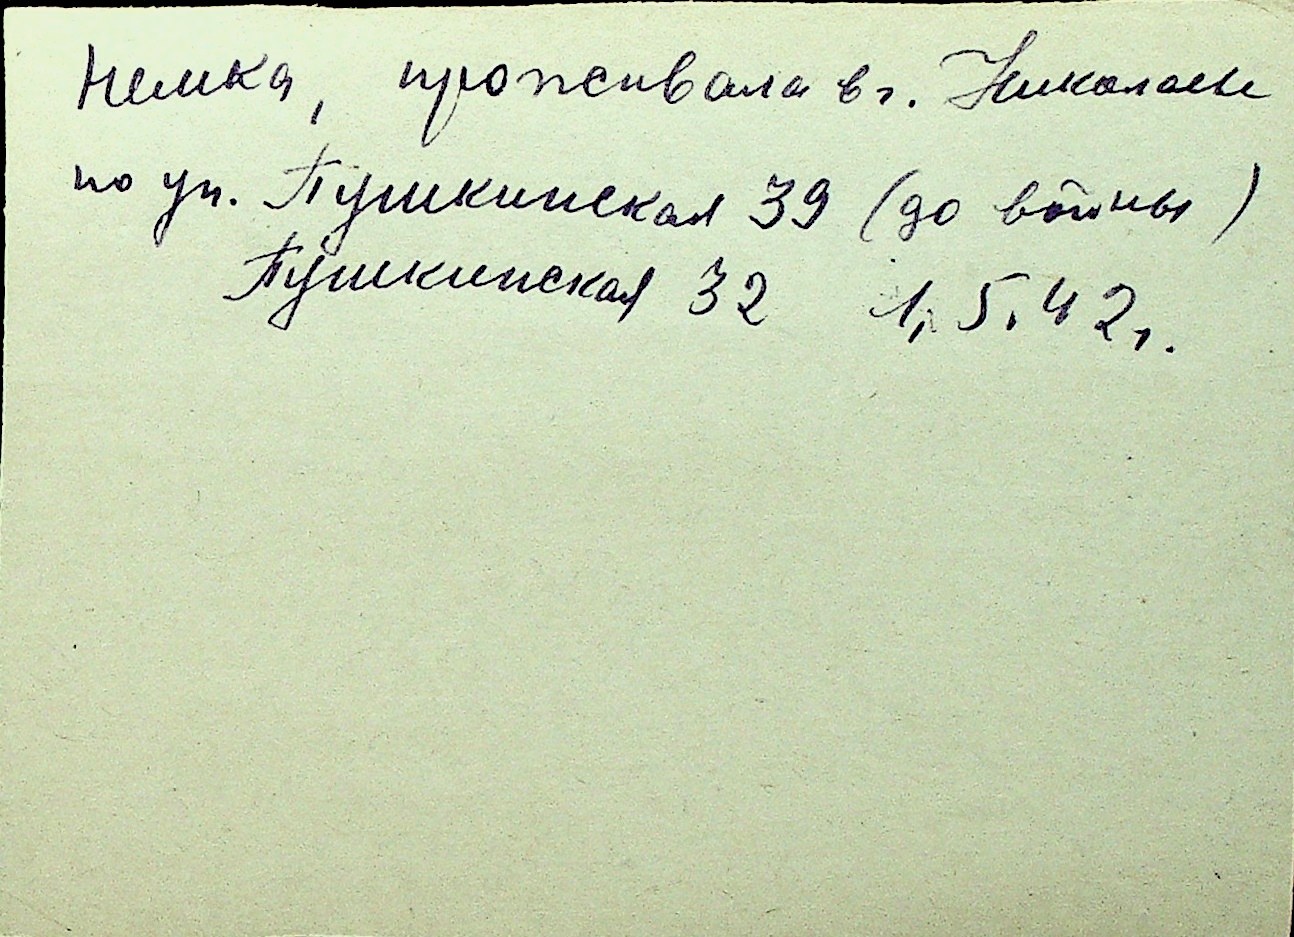 Немка, проживала в г. Николаеве
по ул. Пушкинская 39 (до войны)
Пушкинская 32 1.5.42 г.